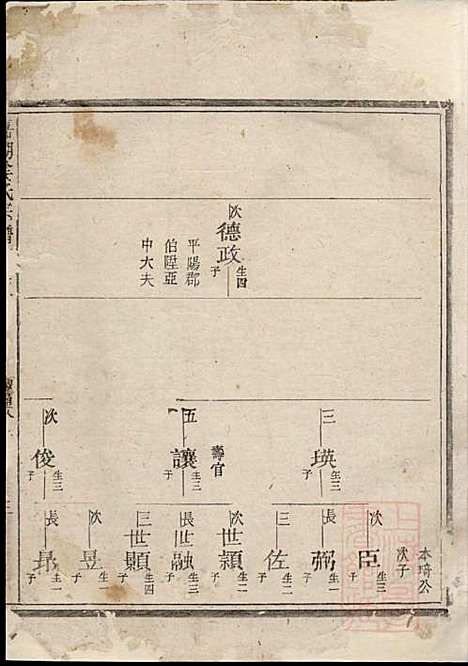 次
德政
生四子
平陽郡
伯陞亞
中大夫
三
瑛
生三子
五
讓
生三子
壽官
次
俊
生三子
本琦公
次子
次
臣
生三子
長
弼
生一子
三
佐
生二子
次
世穎
生二子
長
世融
生三子
三
世顯
生四子
次
昱
生一子
長
昻
生一子